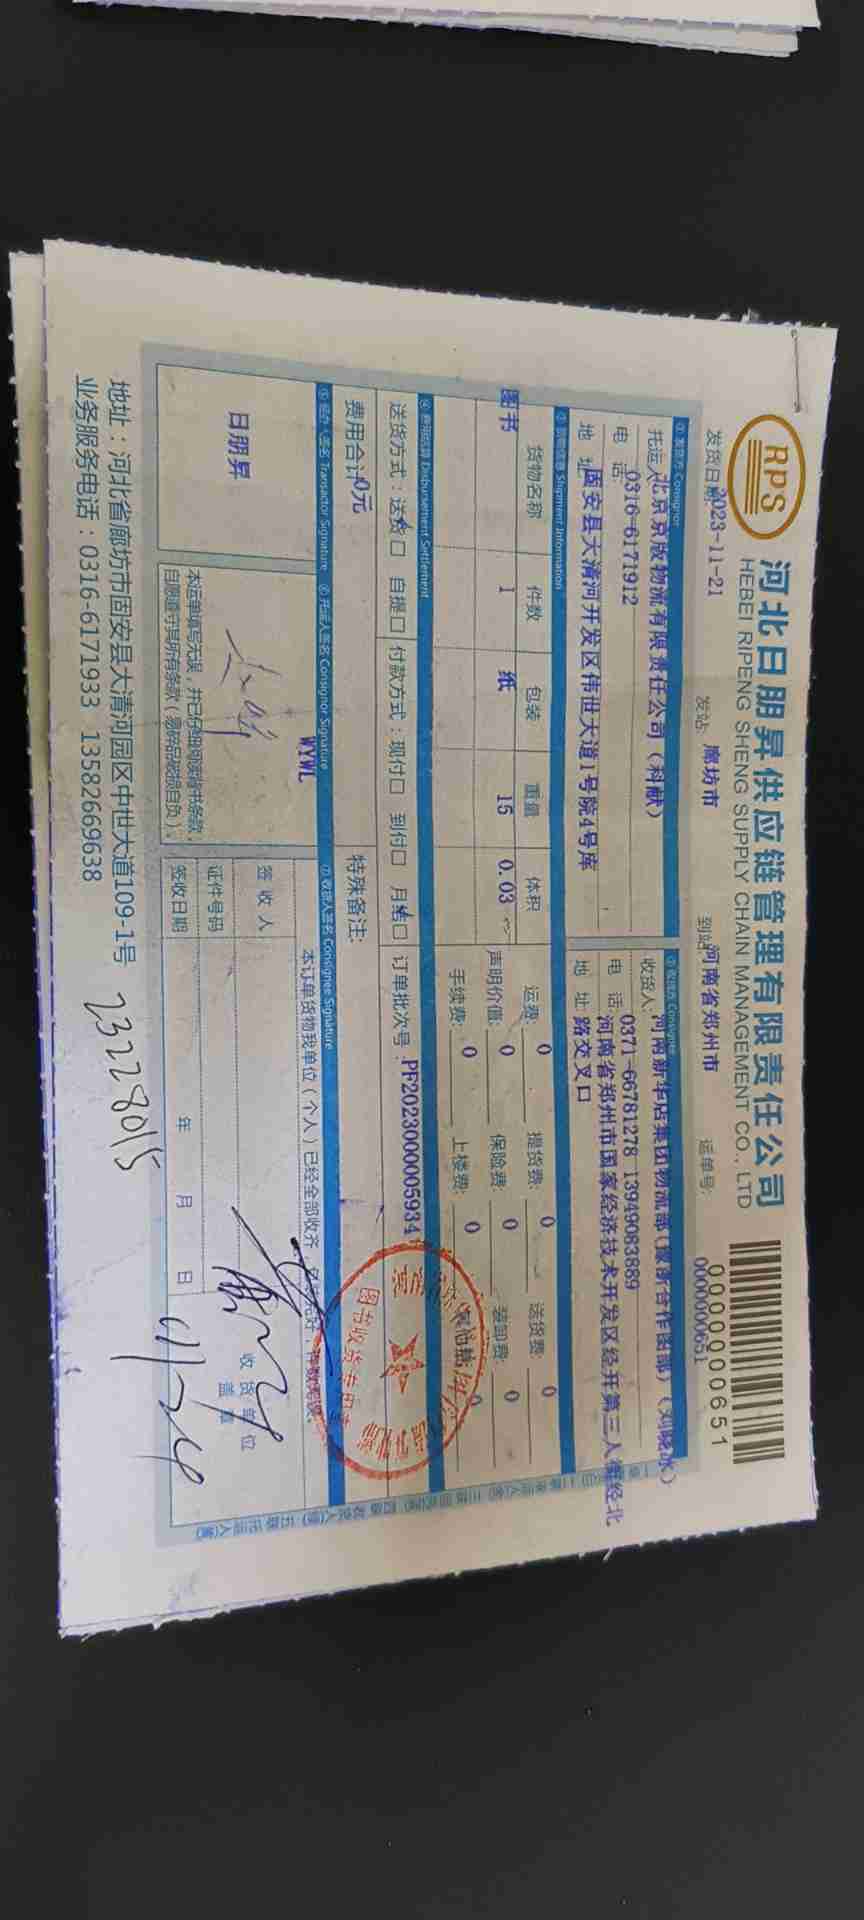 RPS
河北日朋昇供应链管理有限责任公司
HEBEI RIPENG SHENG SUPPLY CHAIN MANAGEMENT CO., LTD
0000000651
发货日期 2023-11-21 发站: 廊坊市 到站: 河南省郑州市 运单号: 0000000651
①发货方 Consignor ②收货方 Consignee
托运人 北京京版物流有限责任公司（科献） 收货人: 河南新华店集团物流部(豫新合作图部)（刘晓冰）
电 话: 0316-6171912 电 话: 0371-66781278 13949083889
地 址: 固安县大清河开发区伟世大道1号院4号库 地 址: 河南省郑州市国家经济技术开发区经开第三人街经北路交叉口
③货物信息 Shipment Information
货物名称 件数 包装 重量 体积 运费: 0 提货费: 0 送货费: 0
图书 1 纸 15 0.03 声明价值: 0 保险费: 0 装卸费: 0
手续费: 0 上楼费: 0 0
④费用结算 Disbursement Settlement
送货方式：送货□ 自提□ 付款方式：现付□ 到付□ 月结□ 订单批次号: PF2023000005934
费用合计 0元 特殊备注:
图书收货专用章
⑤经办人签名 Transactor Signature ⑥托运人签名 Consignor Signature ⑦收货人签名 Consignee Signature
日朋昇
WYWL
本订单货物我单位（个人）已经全部收齐
件数无误
签 收 人
证件号码
签收日期 年 月 日
收货单位
盖章
本运单填写无误，并已仔细阅读背书条款，
自愿遵守其所有条款（易碎品破损自负）。
地址：河北省廊坊市固安县大清河园区中世大道109-1号
业务服务电话：0316-6171933 13582669638
23228015